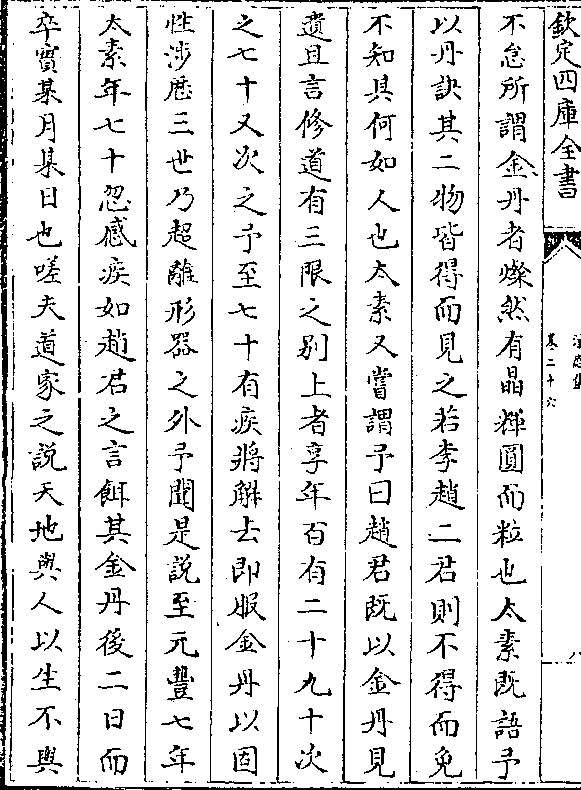 欽定四庫全書
卷二十六
不怠所謂金丹者燦然有晶輝圓而粒也太素既語予
以丹訣其二物皆得而見之若李趙二君則不得而免
不知其何如人也太素又嘗謂予曰趙君既以金丹見
遺且言修道有三限之别上者享年百有二十九十次
之七十又次之予至七十有疾將解去即服金丹以固
性涉厯三世乃超離形器之外予聞是説至元豐七年
太素年七十忽感疾如趙君之言餌其金丹後二日而
卒實某月某日也嗟夫道家之説天地與人以生不與